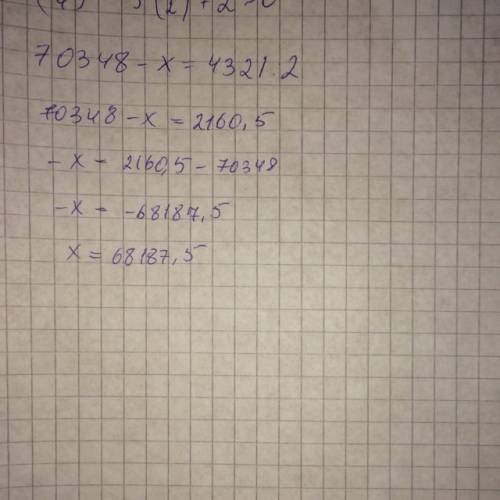 3(2)+2=0
70348-x=4321:2
70348-x=2160,5
-x=2160,5-70348
-x=-68187,5
x=68187,5